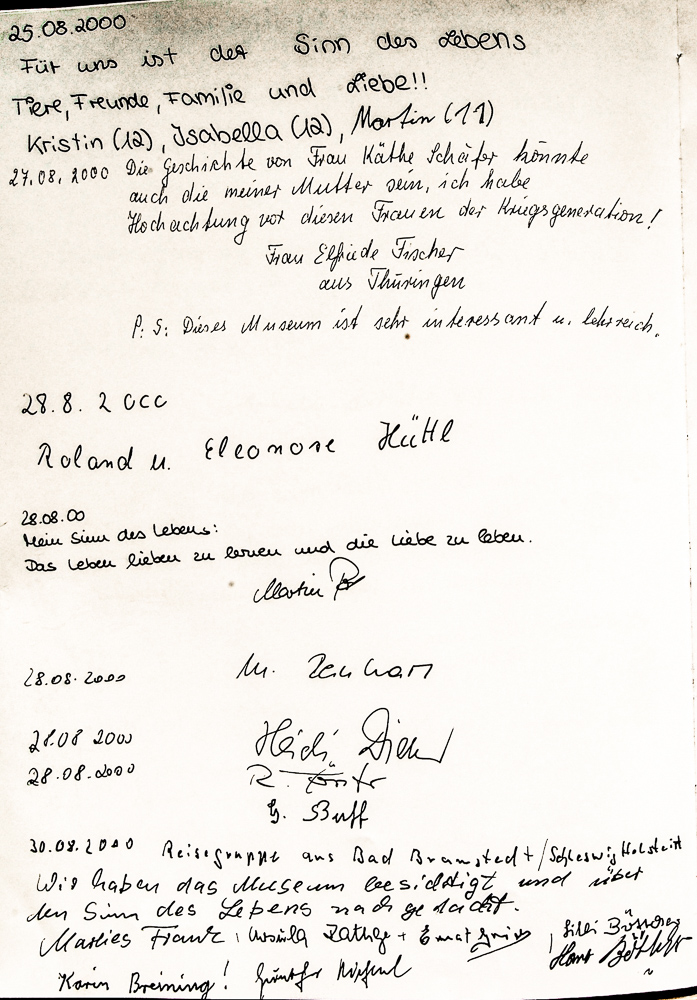 25.08.2000
Für uns ist der Sinn des Lebens
Tiere, Freunde, Familie und Liebe!!
Kristin (12), Isabella (12), Martin (11)
27.08.2000 Die Geschichte von Frau Käthe Schäfer könnte
auch die meiner Mutter sein, ich habe
Hochachtung vor diesen Frauen der Kriegsgeneration!
Frau Elfriede Fischer
aus Thüringen
P. S: Dieses Museum ist sehr interessant u. lehrreich.
28.8.2000
Roland u. Eleonore Hüttl
28.08.00
Mein Sinn des Lebens:
Das Leben lieben zu lernen und die Liebe zu leben.
Martin
28.08.2000 M.
28.08 2000 Heidi
28.08.2000 R.
G. Buff
30.08.2000 Reisegruppe aus Bad Bramstedt/Schleswig Holstein
Wir haben das Museum besichtigt und über
den Sinn des Lebens nachgedacht.
Marlies Frank, Ursula Rathje +
Karin Breining! Günther